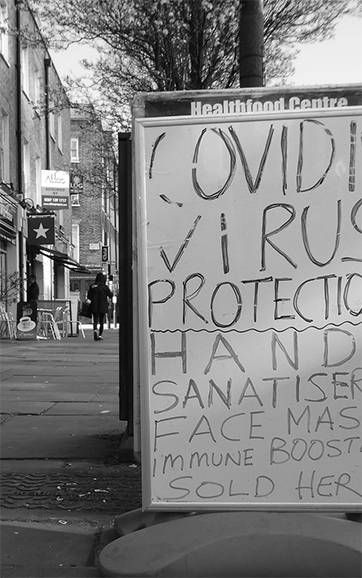 Healthfood Centre
COVID1
VIRUS
PROTECTIO
HAND
SANATISER
FACE MAS
IMMUNE BOOST
SOLD HER